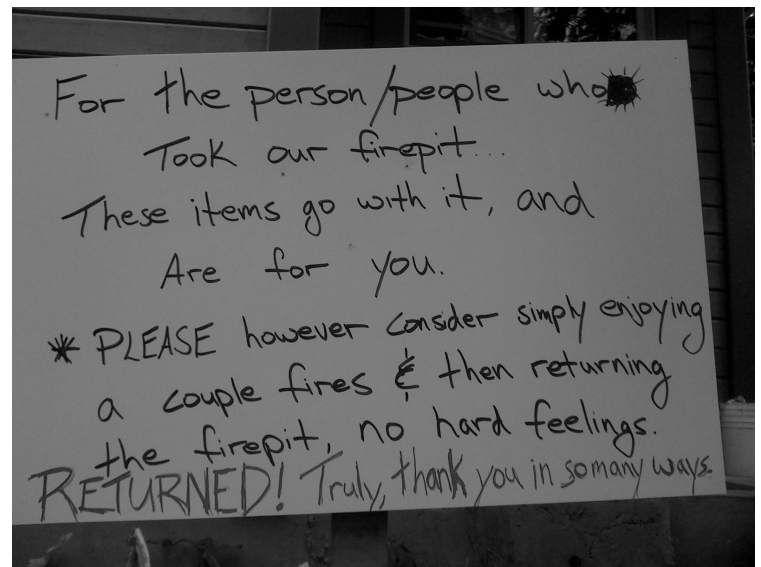 For the person/people who
Took our firepit...
These items go with it, and
Are for you.
* PLEASE however consider simply enjoying
a couple fires & then returning
the firepit, no hard feelings.
RETURNED! Truly, thank you in so many ways.